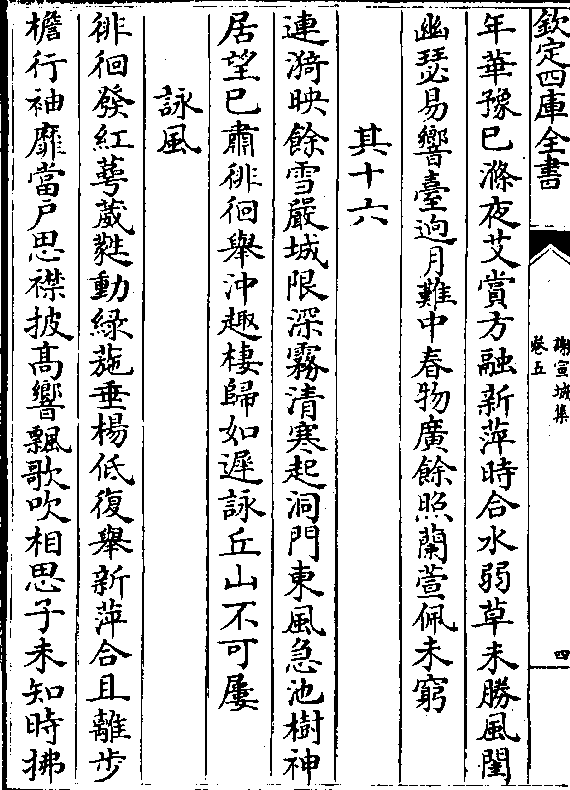 欽定四庫全書
謝宣城集
卷五
四
年華豫已滌夜艾賞方融新萍時合水弱草未勝風閨
幽瑟易響臺迥月難中春物廣餘照蘭萱佩未窮
其十六
連漪映餘雪嚴城限深霧清寒起洞門東風急池樹神
居望已肅徘徊舉沖趣棲歸如遲詠丘山不可屢
詠風
徘徊發紅萼葳蕤動綠葹垂楊低復舉新萍合且離步
檐行袖靡當户思襟披高響飄歌吹相思子未知時拂